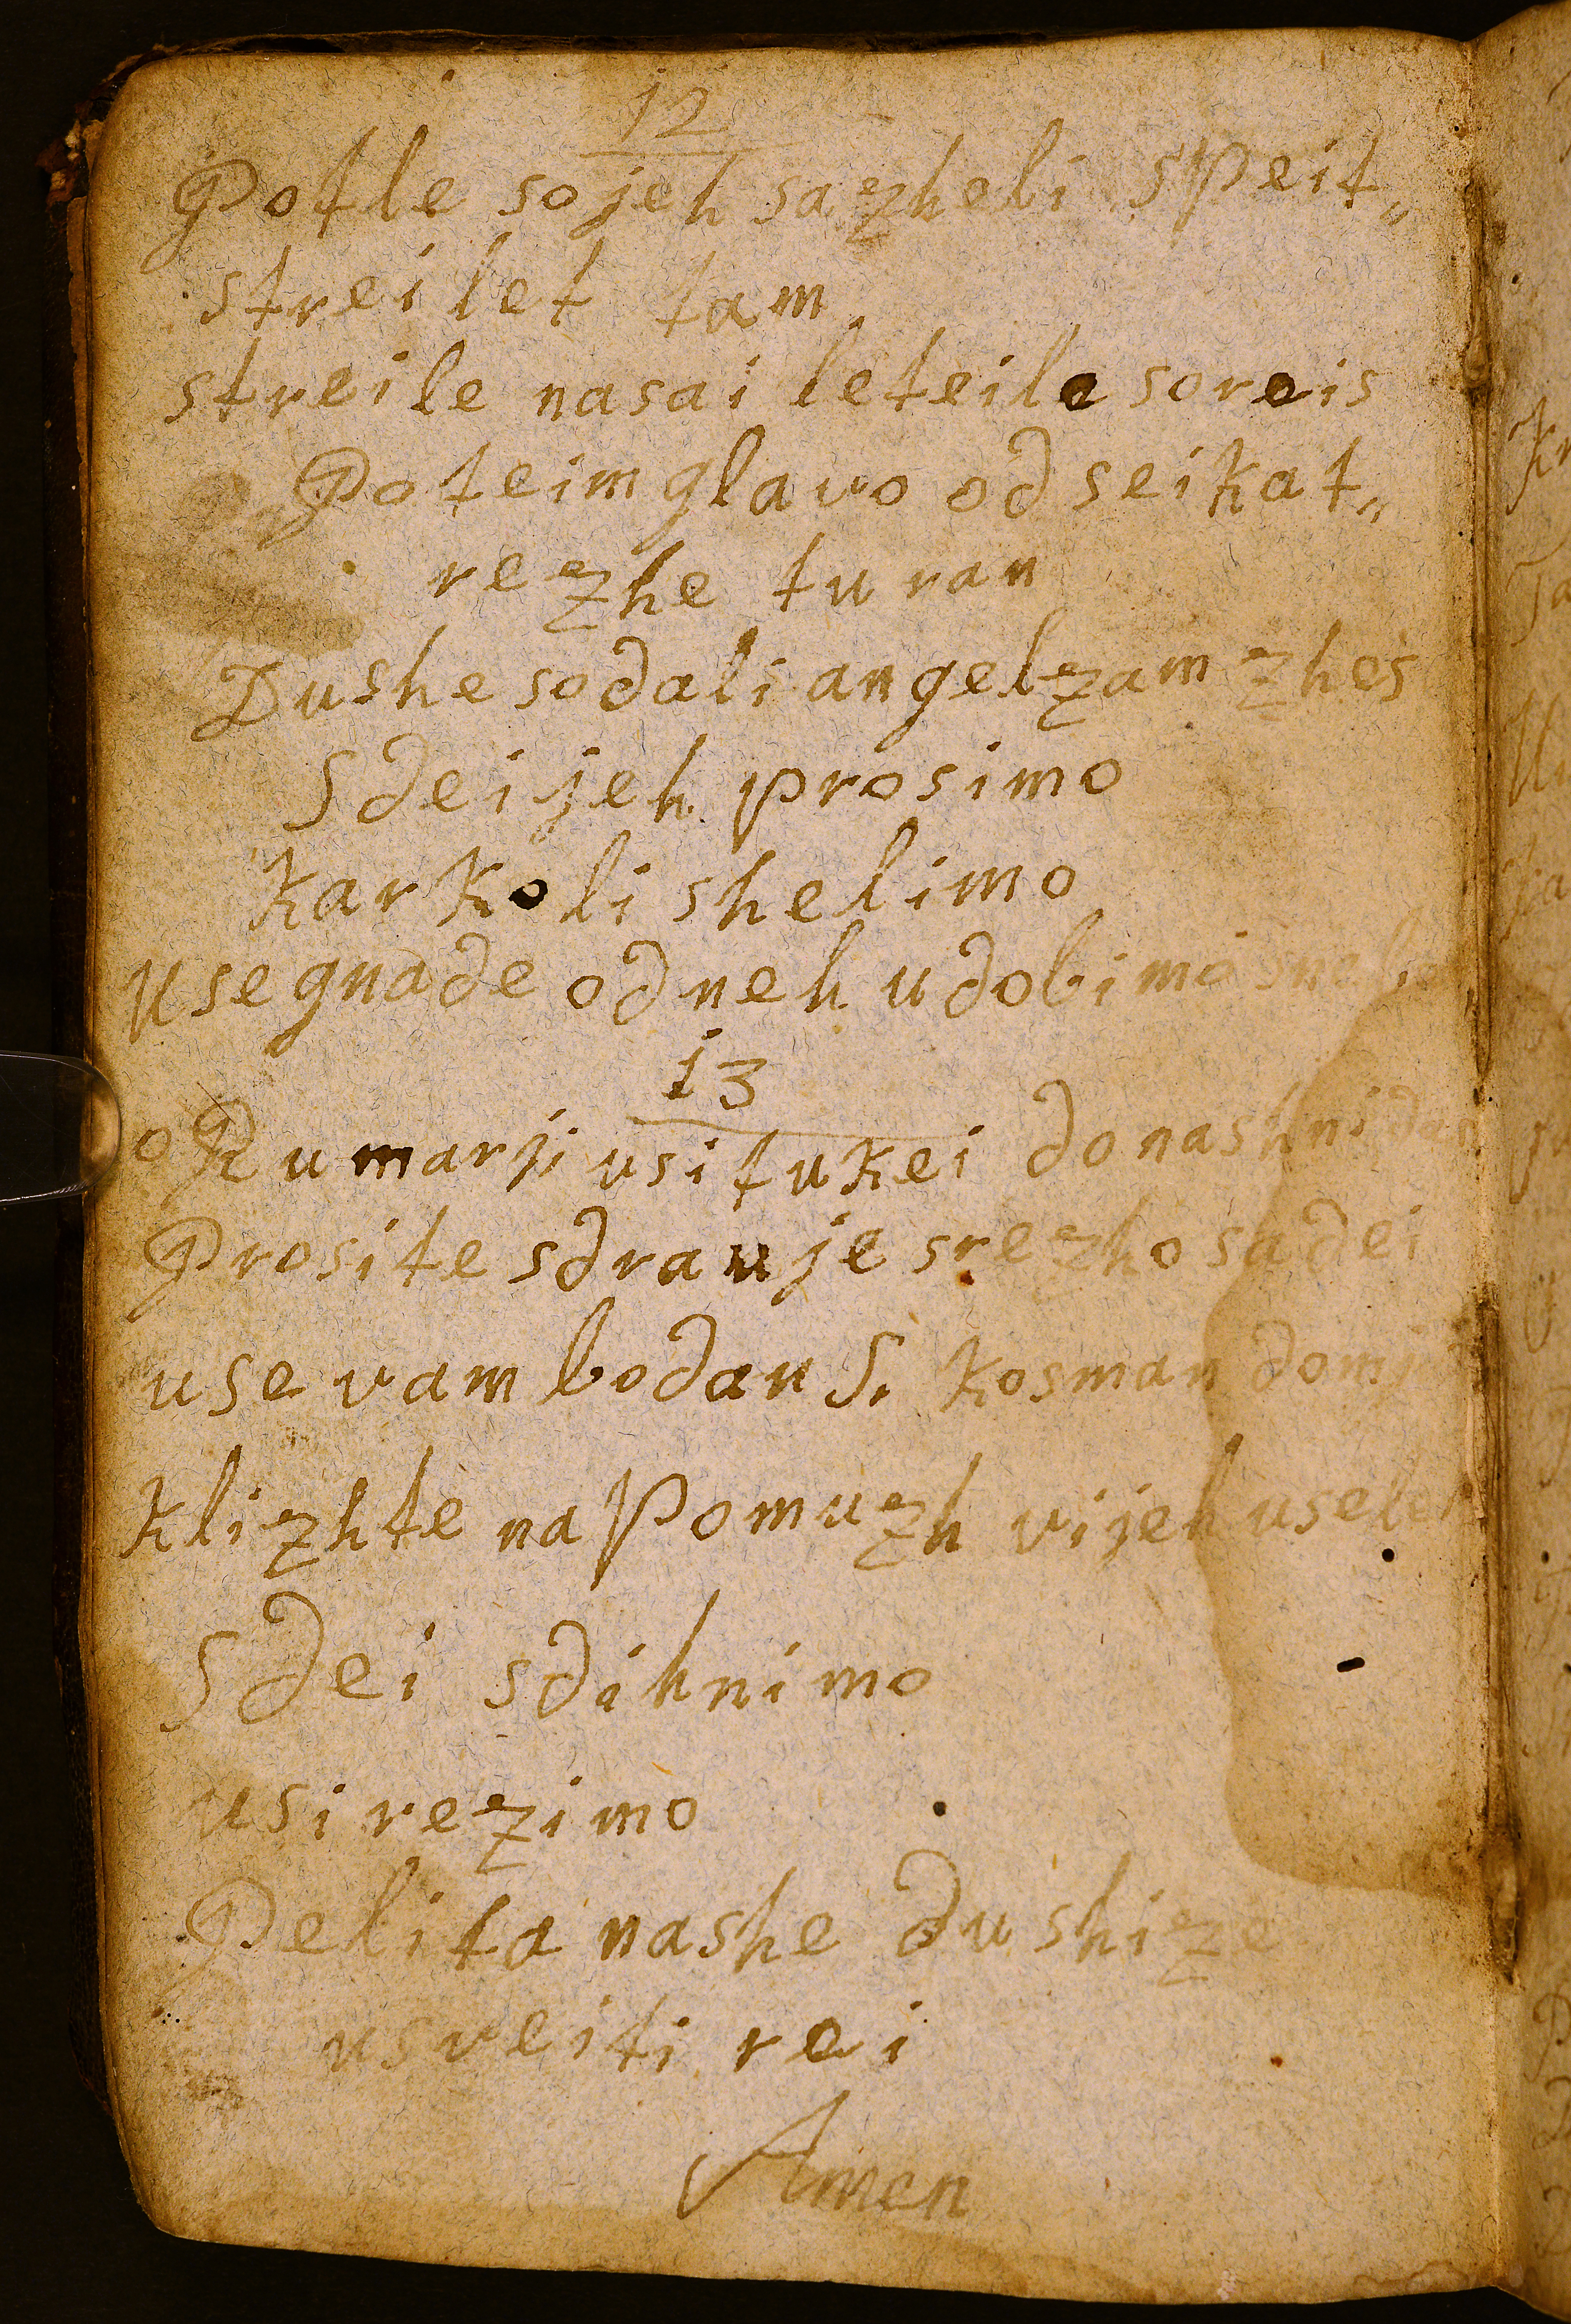 12
Potle so jeh sazheli s Peit„
streilet tam
streile nasai leteile soreis
Poteim glavo od seikat„
rezhe tu ran
Dushe so dali angelzam zhes
Sdei jeh prosimo
kar koli shelimo
use gnade od neh udobimo
13
o Rumarji usi tukei do nashni
Prosite sdrauje srezho sa dei
use vam bo dau S. kosman
klizhte na Pomuzh vi jeh
Sdei sdihnimo
usi rezimo
Pelita nashe dushize
usveiti rei
Amen